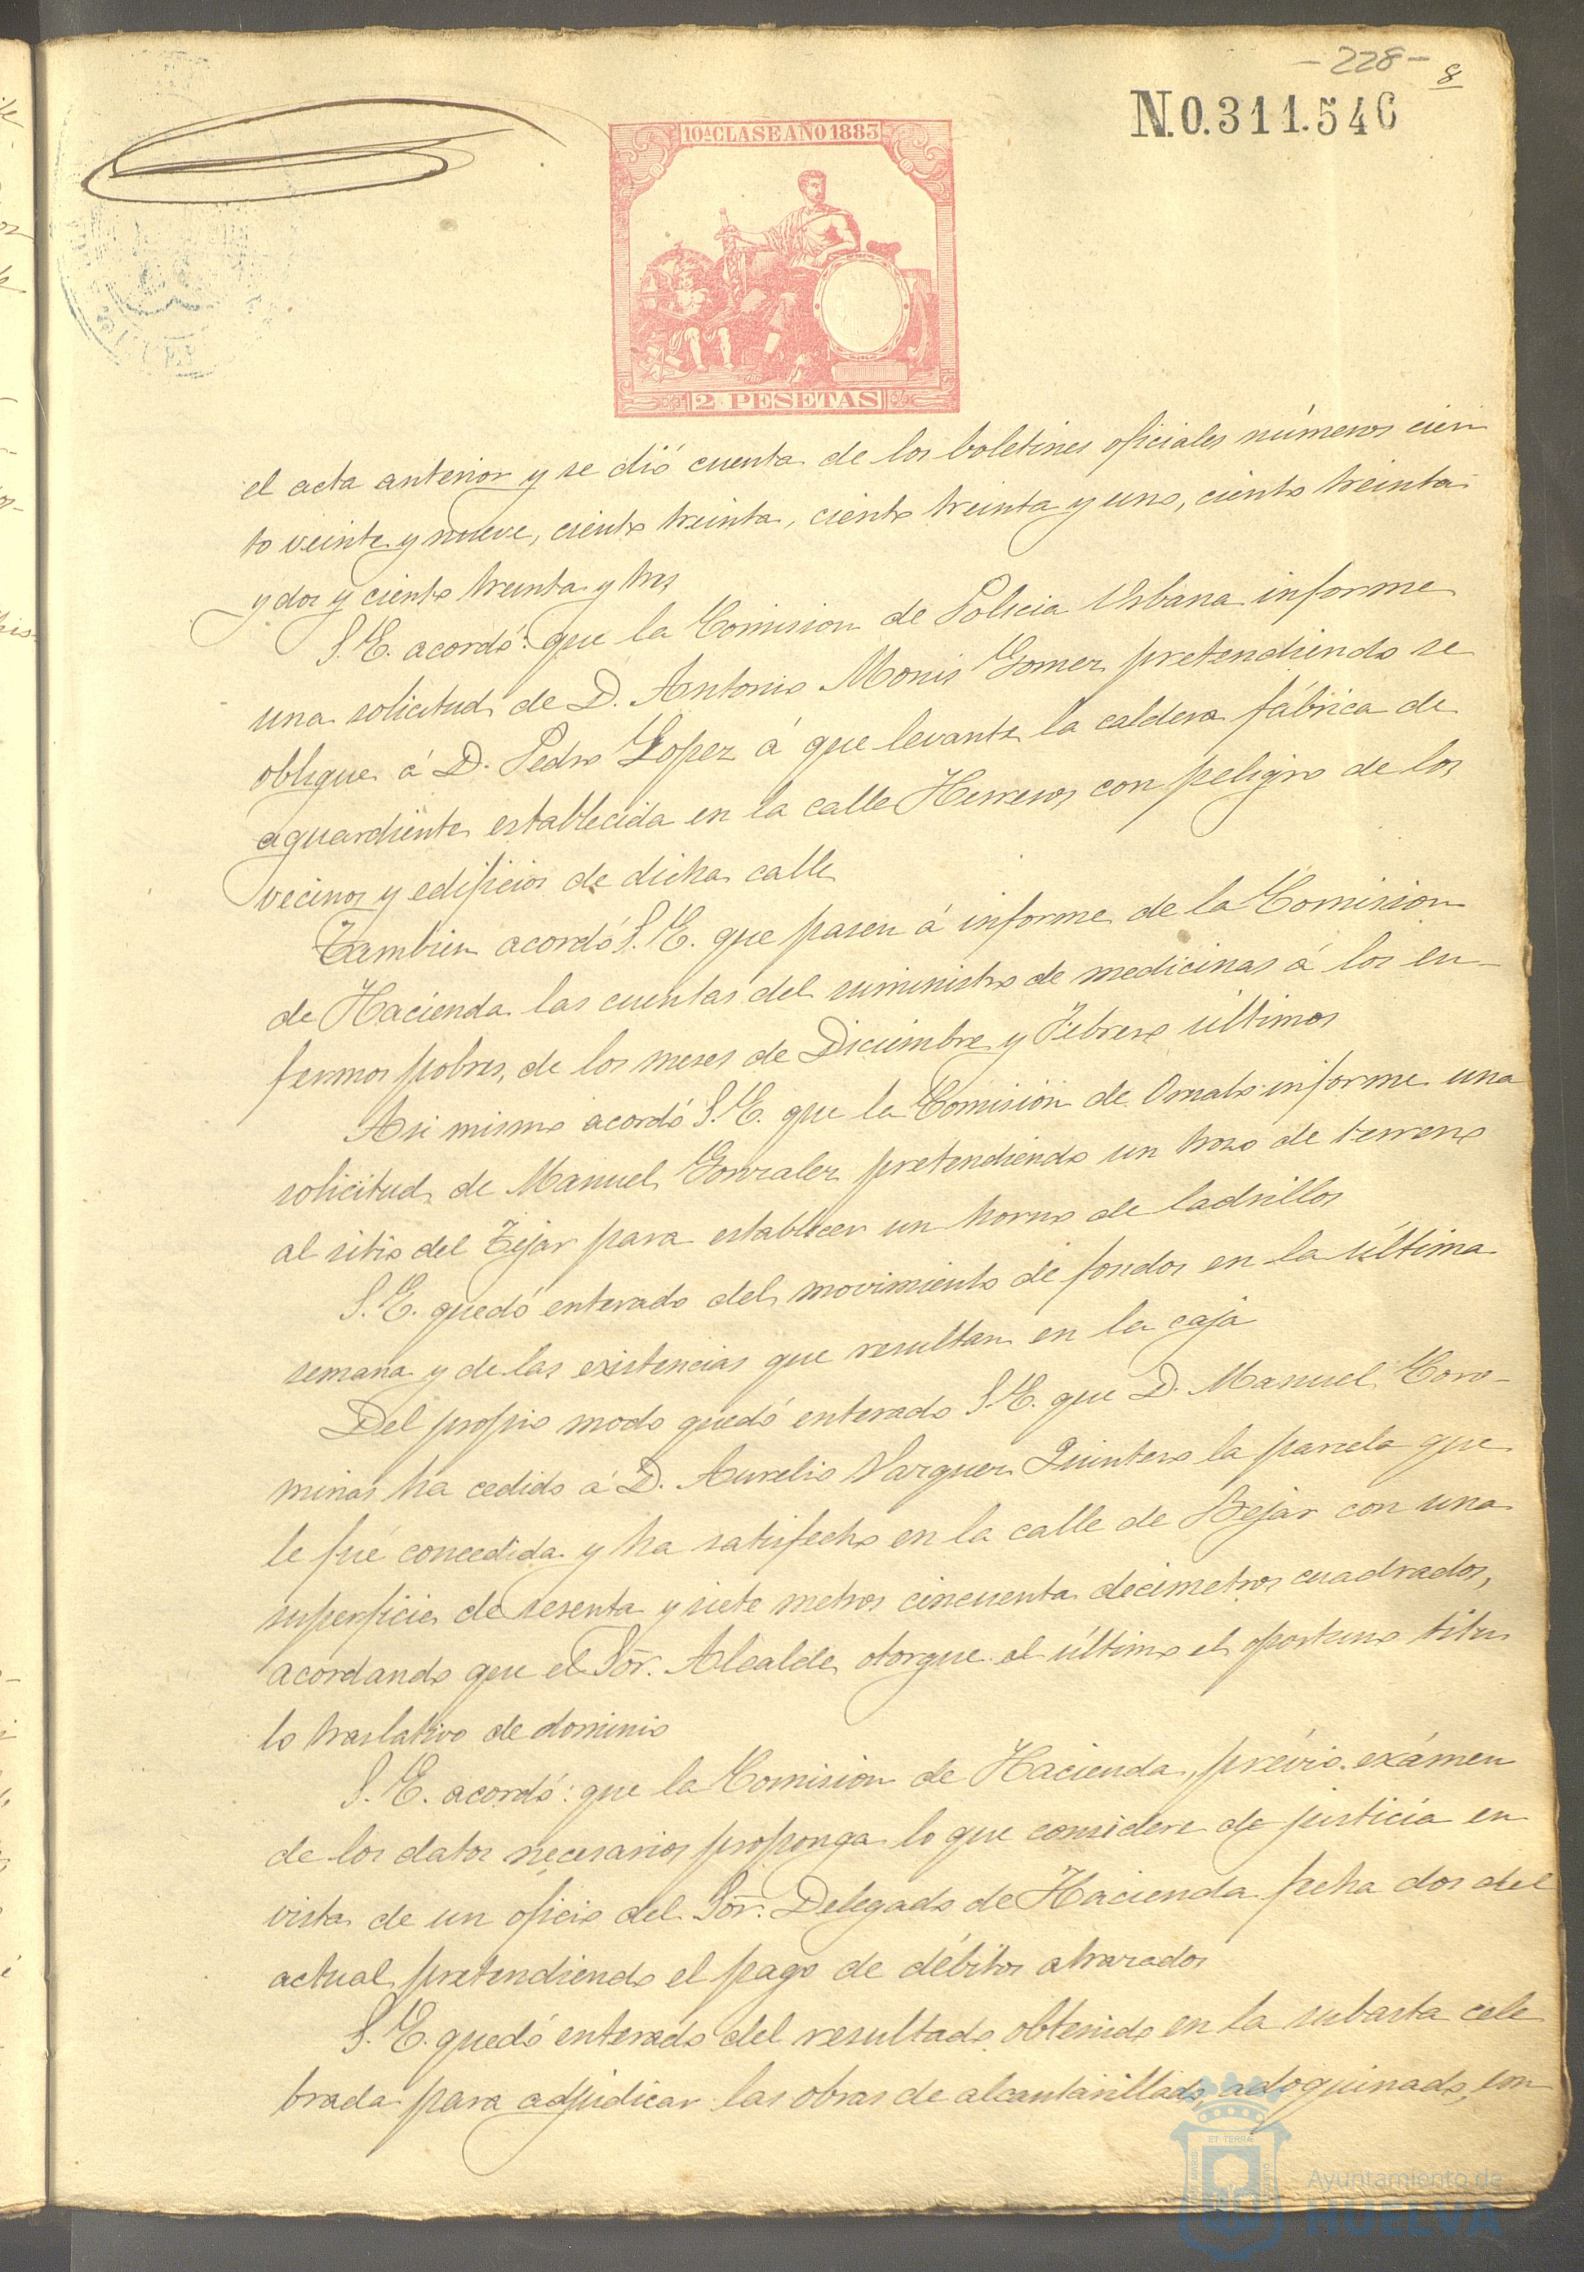 -228-
8
N.0.311.546
10ª CLASE AÑO 1883
2 PESETAS
el acta anterior y se dió cuenta de los boletines oficiales números cien
to veinte y nueve, ciento treinta, ciento treinta y uno, ciento treinta
y dos y ciento treinta y tres
S. E. acordó: que la Comision de Policia Urbana informe
una solicitud de D. Antonio Monis Gomez pretendiendo se
obligue á D. Pedro Lopez á que levante la caldera fábrica de
aguardiente establecida en la calle Herreros con peligro de los
vecinos y edificios de dicha calle
Tambien acordó S. E. que pasen á informe de la Comision
de Hacienda las cuentas del suministro de medicinas á los en-
fermos pobres, de los meses de Diciembre y Febrero últimos
Asi mismo acordó S. E. que la Comision de Ornato informe una
solicitud de Manuel Gonzalez pretendiendo un trozo de terreno
al sitio del Tejar para establecer un horno de ladrillos
S. E. quedó enterado del movimiento de fondos en la última
semana y de las existencias que resultan en la caja
Del propio modo quedó enterado S. E. que D. Manuel Coro-
minas ha cedido á D. Aurelio Vazquez Quintero la parcela que
le fué concedida y ha satisfecho en la calle de Bejar con una
superficie de sesenta y siete metros cincuenta decimetros cuadrados,
acordando que el Sor. Alcalde otorgue al último el oportuno titu
lo traslativo de dominio
S. E. acordó: que la Comision de Hacienda, prévio exámen
de los datos necesarios proponga lo que considere de justicia en
vista de un oficio del Sor. Delegado de Hacienda fecha dos del
actual pretendiendo el pago de débitos atrazados
S. E. quedó enterado del resultado obtenido en la subasta cele
brada para adjudicar las obras de alcantarillado, adoquinado, em
Ayuntamiento de
HUELVA